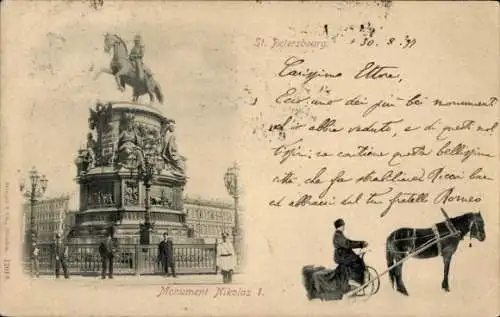 St. Petersbourg.
30.8.97
Carissimo Ettore,
Ecco uno dei più bei monumenti
ch'io abbia veduto, e di questi nel
ne contiene questa bellissima
città, che fa strabiliare. Ricevi baci
ed abbracci dal tuo fratello Romeo
Monument Nikolas I.